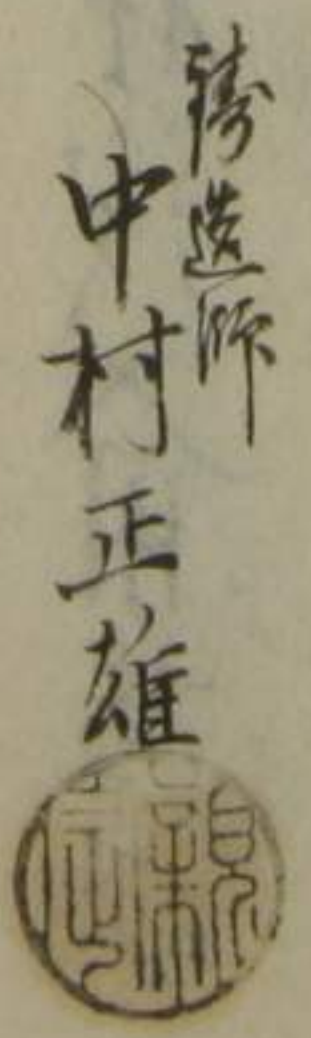 鋳造師
中村正雄